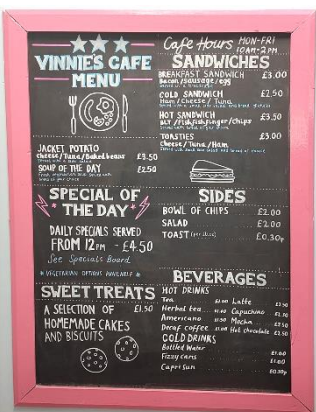 VINNIE'S CAFE
MENU
JACKET POTATO
Cheese/Tuna/Baked beans £3.50
SOUP OF THE DAY £2.50
SPECIAL OF
THE DAY
DAILY SPECIALS SERVED
FROM 12PM - £4.50
See Specials Board
* VEGETARIAN OPTIONS AVAILABLE *
SWEET TREATS
A SELECTION OF £1.50
HOMEMADE CAKES
AND BISCUITS
Cafe Hours MON-FRI
10AM-2PM
SANDWICHES
BREAKFAST SANDWICH £3.00
Bacon/Sausage/egg
COLD SANDWICH £2.50
Ham/Cheese/Tuna
HOT SANDWICH £3.50
BLT/Fish finger/chips
TOASTIES £3.00
Cheese/Tuna/Ham
SIDES
BOWL OF CHIPS £2.00
SALAD £2.00
TOAST (per slice) £0.30p
BEVERAGES
HOT DRINKS
Tea Latte
Herbal tea Capuchino
Americano Mocha
Decaf coffee Hot chocolate
COLD DRINKS
Bottled Water
Fizzy cans
Capri sun